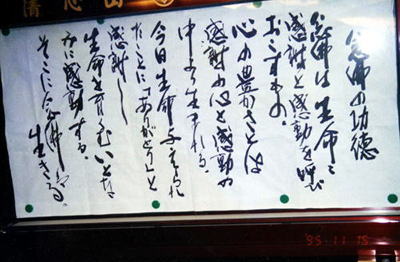 山
念佛の功徳
念佛は生命に
感謝と感動を呼び
おこすもの
心の豊かさとは
感謝の心と感動の
中に生まれる
今日生命与えられ
たことに「ありがとう」と
感謝し
生命を育むいとなみ
に感動する
そこに念佛が
生きる。
'95 11 15